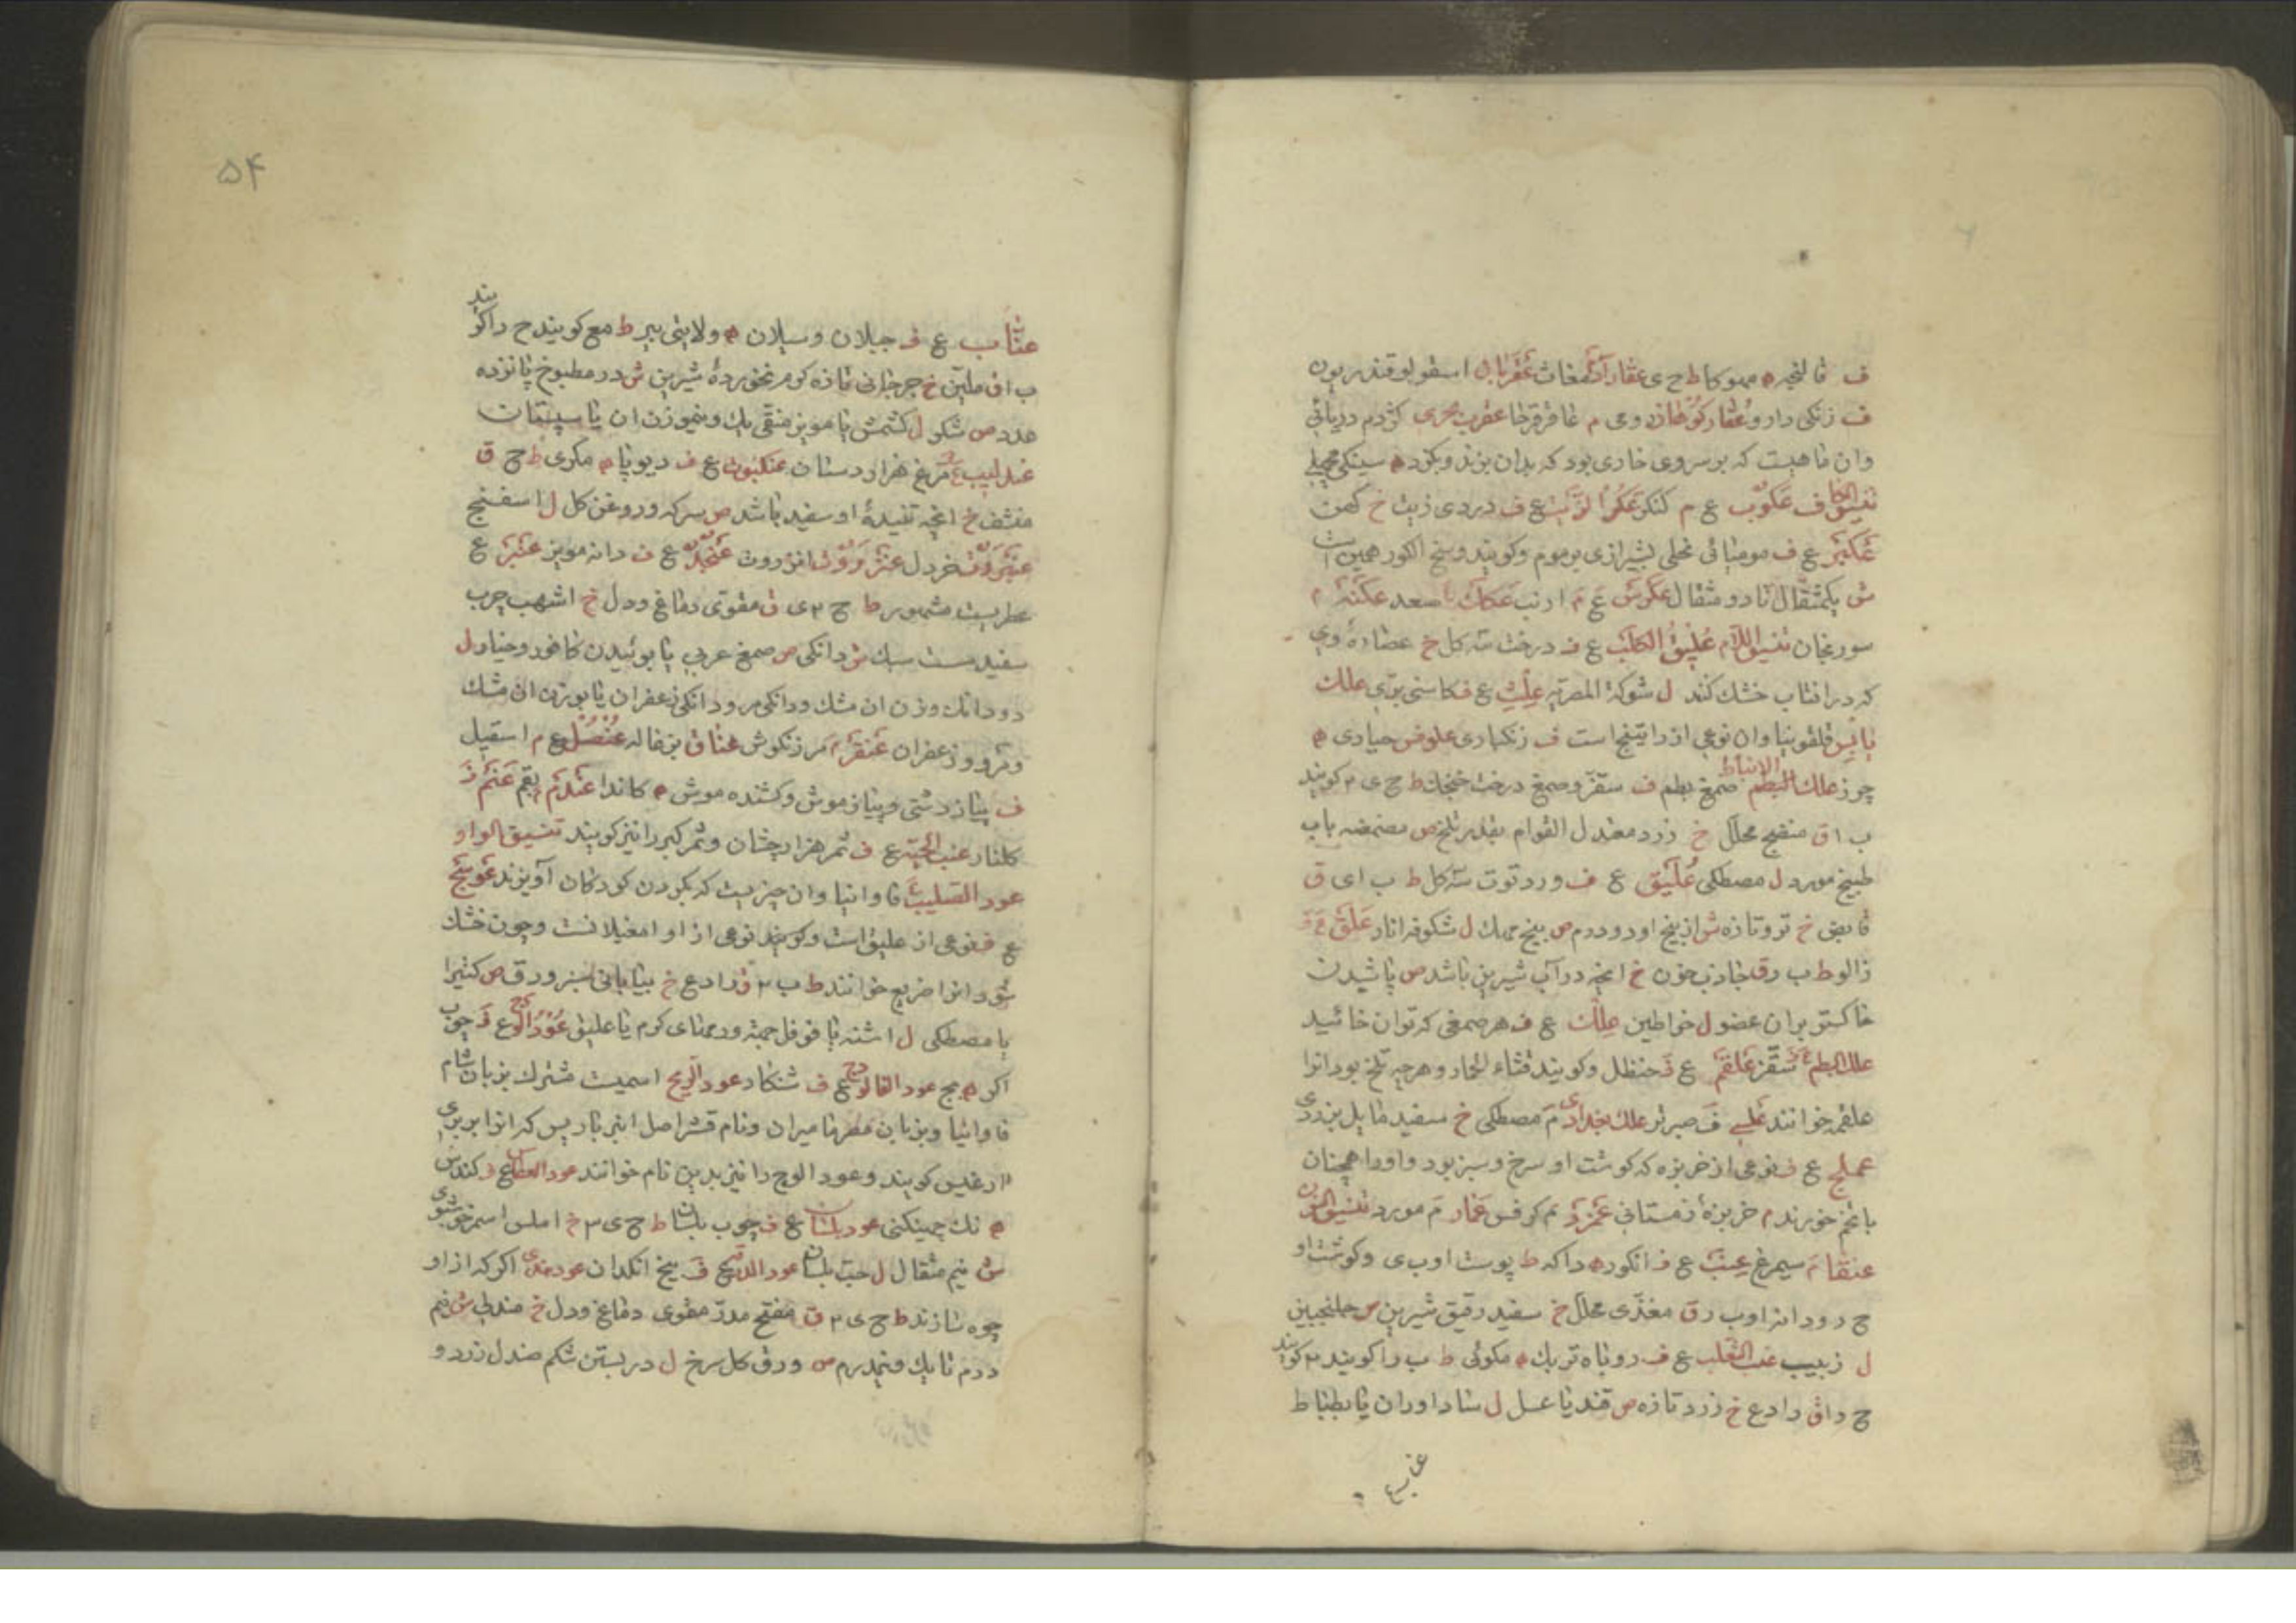 ف فالنجه ه مموکا ط ح ی عقار آدم مغاث عقربان اسقولوقندریون
ف زنکی دارو عقار کوهان رومی م عاقرقرحا عقرب بحری کژدم دریائی
وان ماهیست که بر سر وی خاری بود که بدان بزند وبکزد ه سینکی مچهلی
تنسیق الکاف عکوب ع م کنکر عکر الزیت ع ف دردی زیت خ کهن
عکبر ع ف مومیائی نحلی بشیرازی برموم وکویند وسخ الکور همین است
ش یکمثقال تا دو مثقال عکرش ع م ارنب عکاک سعد عکنه م
سورنجان تنسیق اللام علیق الکلب ع ف درخت سه کل خ عصاره وی
که در افتاب خشک کنند ل شوکة المصریه علث ع ف کاسنی بری علک
یابس قلفونیا وان نوعی از راتینج است ف زنکباری علوفس خیاری ه
چوز علک الانباط صمغ بطم ف سقز وصمغ درخت خنجک ط ح ی ۲ کویند
ب ا ق منضج محلل خ زرد معتدل القوام بقدر تلخ ص مضمضه باب
طبیخ مورد ل مصطکی علیق ع ف ورد توت سه کل ط ب ا ی ق
قابض خ تر وتازه ش از بیخ او دو درم ص بیخ مهک ل شکوفه انار علق ع ف
زالو ط ب ر ق جاذب خون خ انچه در آب شیرین باشد ص پاشیدن
خاکستر بران عضو ل خراطین علک ع ف هر صمغی که توان خائید
علک البطم سقز علقم ع ف حنظل وکویند قثاء الحمار وهرچه تلخ بود انرا
علقم خوانند علسی ف صبر تر علک بغدادی م مصطکی خ سفید مایل بزردی
عملج ع ف نوعی از خربزه که کوشت او سرخ وسبز بود واورا همچنان
با تخم خورند م خربزه زمستانی عمرد م کرفس عمار م مورد تنسیق النون
عنقا م سیمرغ عنب ع ف انکور ه داکه ط پوست او ب ی وکوشت او
ح ر ودانه او ب ر ق مغذی محلل خ سفید رقیق شیرین ص جلنجبین
ل زبیب عنب الثعلب ع ف روباه تربک ه مکوئی ط ب را کویند ۲ کویند
ح ر ا ق رادع خ زرد تازه ص قند یا عسل ل شاداوران یا بطباط
عناب ع
۵۴
عناب ع ف جیلان وسیلان ه ولایتی بیر ط مع کویند ح را کویند
ب ا ق ملین خ جرجانی تازه کرم نخورده شیرین ش در مطبوخ پانزده
عدد ص شکر ل کشمش یا مویز منقی یک ونیم وزن ان یا سپستان
عندلیب ع م مرغ هزار دستان عنکبوت ع ف دیوپا ه مکری ط ح ق
منشف خ انچه تنیده او سفید باشد ص سرکه وروغن کل ل اسفنج
خردل عنزروت انزروت عنجد ع ف دانه مویز عنبر ع
عطریست مشهور ط ح ۲ ی ق مقوی دماغ ودل خ اشهب چرب
سفید ست سبک ش دانکی ص صمغ عربی یا بوئیدن کافور وخیار ل
دودانک وزن ان مشک ودانکی مر ودانکی زعفران یا بوزن ان مشک
ومر و زعفران عنقر م مرزنکوش عناق بزغاله عنصل ع م اسقیل
ف پیاز دشتی وپیاز موش وکشنده موش ه کاندا عندم م بقم عنم ف
کلنار عنب الحیه ع ف ثمر هزارجشان وثمر کبر را نیز کویند تنسیق الواو
عود الصلیب فاوانیا وان چیزیست که بکردن کودکان آویزند عوسج
ع ف نوعی از علیق است وکویند نوعی از او امغیلانست وچون خشک
شود انرا ضریع خوانند ط ب ۲ ق رادع خ بیابانی سبز ورق ص کتیرا
یا مصطکی ل اشنه یا فوفل حمیه ودمای کرم یا علیق عود الوج ع ف چوب
اکر ه بج عود الفالوج ع ف شنکار عود الریح اسمیست مشترک بزبان شام
فاوانیا وبزبان مصر مامیران ونام قشر اصل انبرباریس که انرا بربری
ارغیس کویند وعود الوج را نیز بدین نام خوانند عود العطاس ع ف کندس
ه نک چهینکنی عود بلسان ع ف چوب بلسان ط ح ی ۳ خ املس اسمر خوشبوی
ش نیم مثقال ل حب بلسان عود الدیح ف بیخ انکدان عود هندی اکر که از او
چوه سازند ط ح ی ۲ ق مفتح مدر مقوی دماغ ودل خ مندلی ش نیم
درم تا یک ونیمدرم ص ورق کل سرخ ل در بستن شکم صندل زرد و